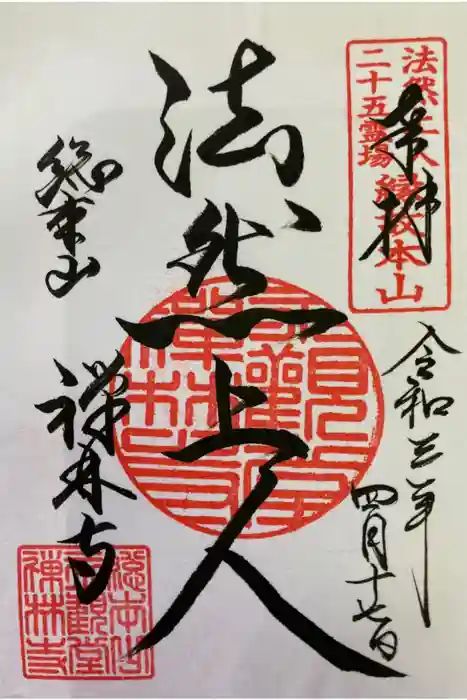 法然上人
二十五霊場
縁故本山
奉拝
令和三年
四月十七日
法然上人
總本山
禅林寺
總本山
禅林寺